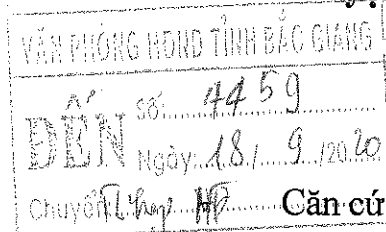 VĂN PHÒNG HĐND TỈNH BẮC GIANG
ĐẾN
Số: 4459
Ngày: 18/ 9 /2020
Chuyển:
Căn cứ